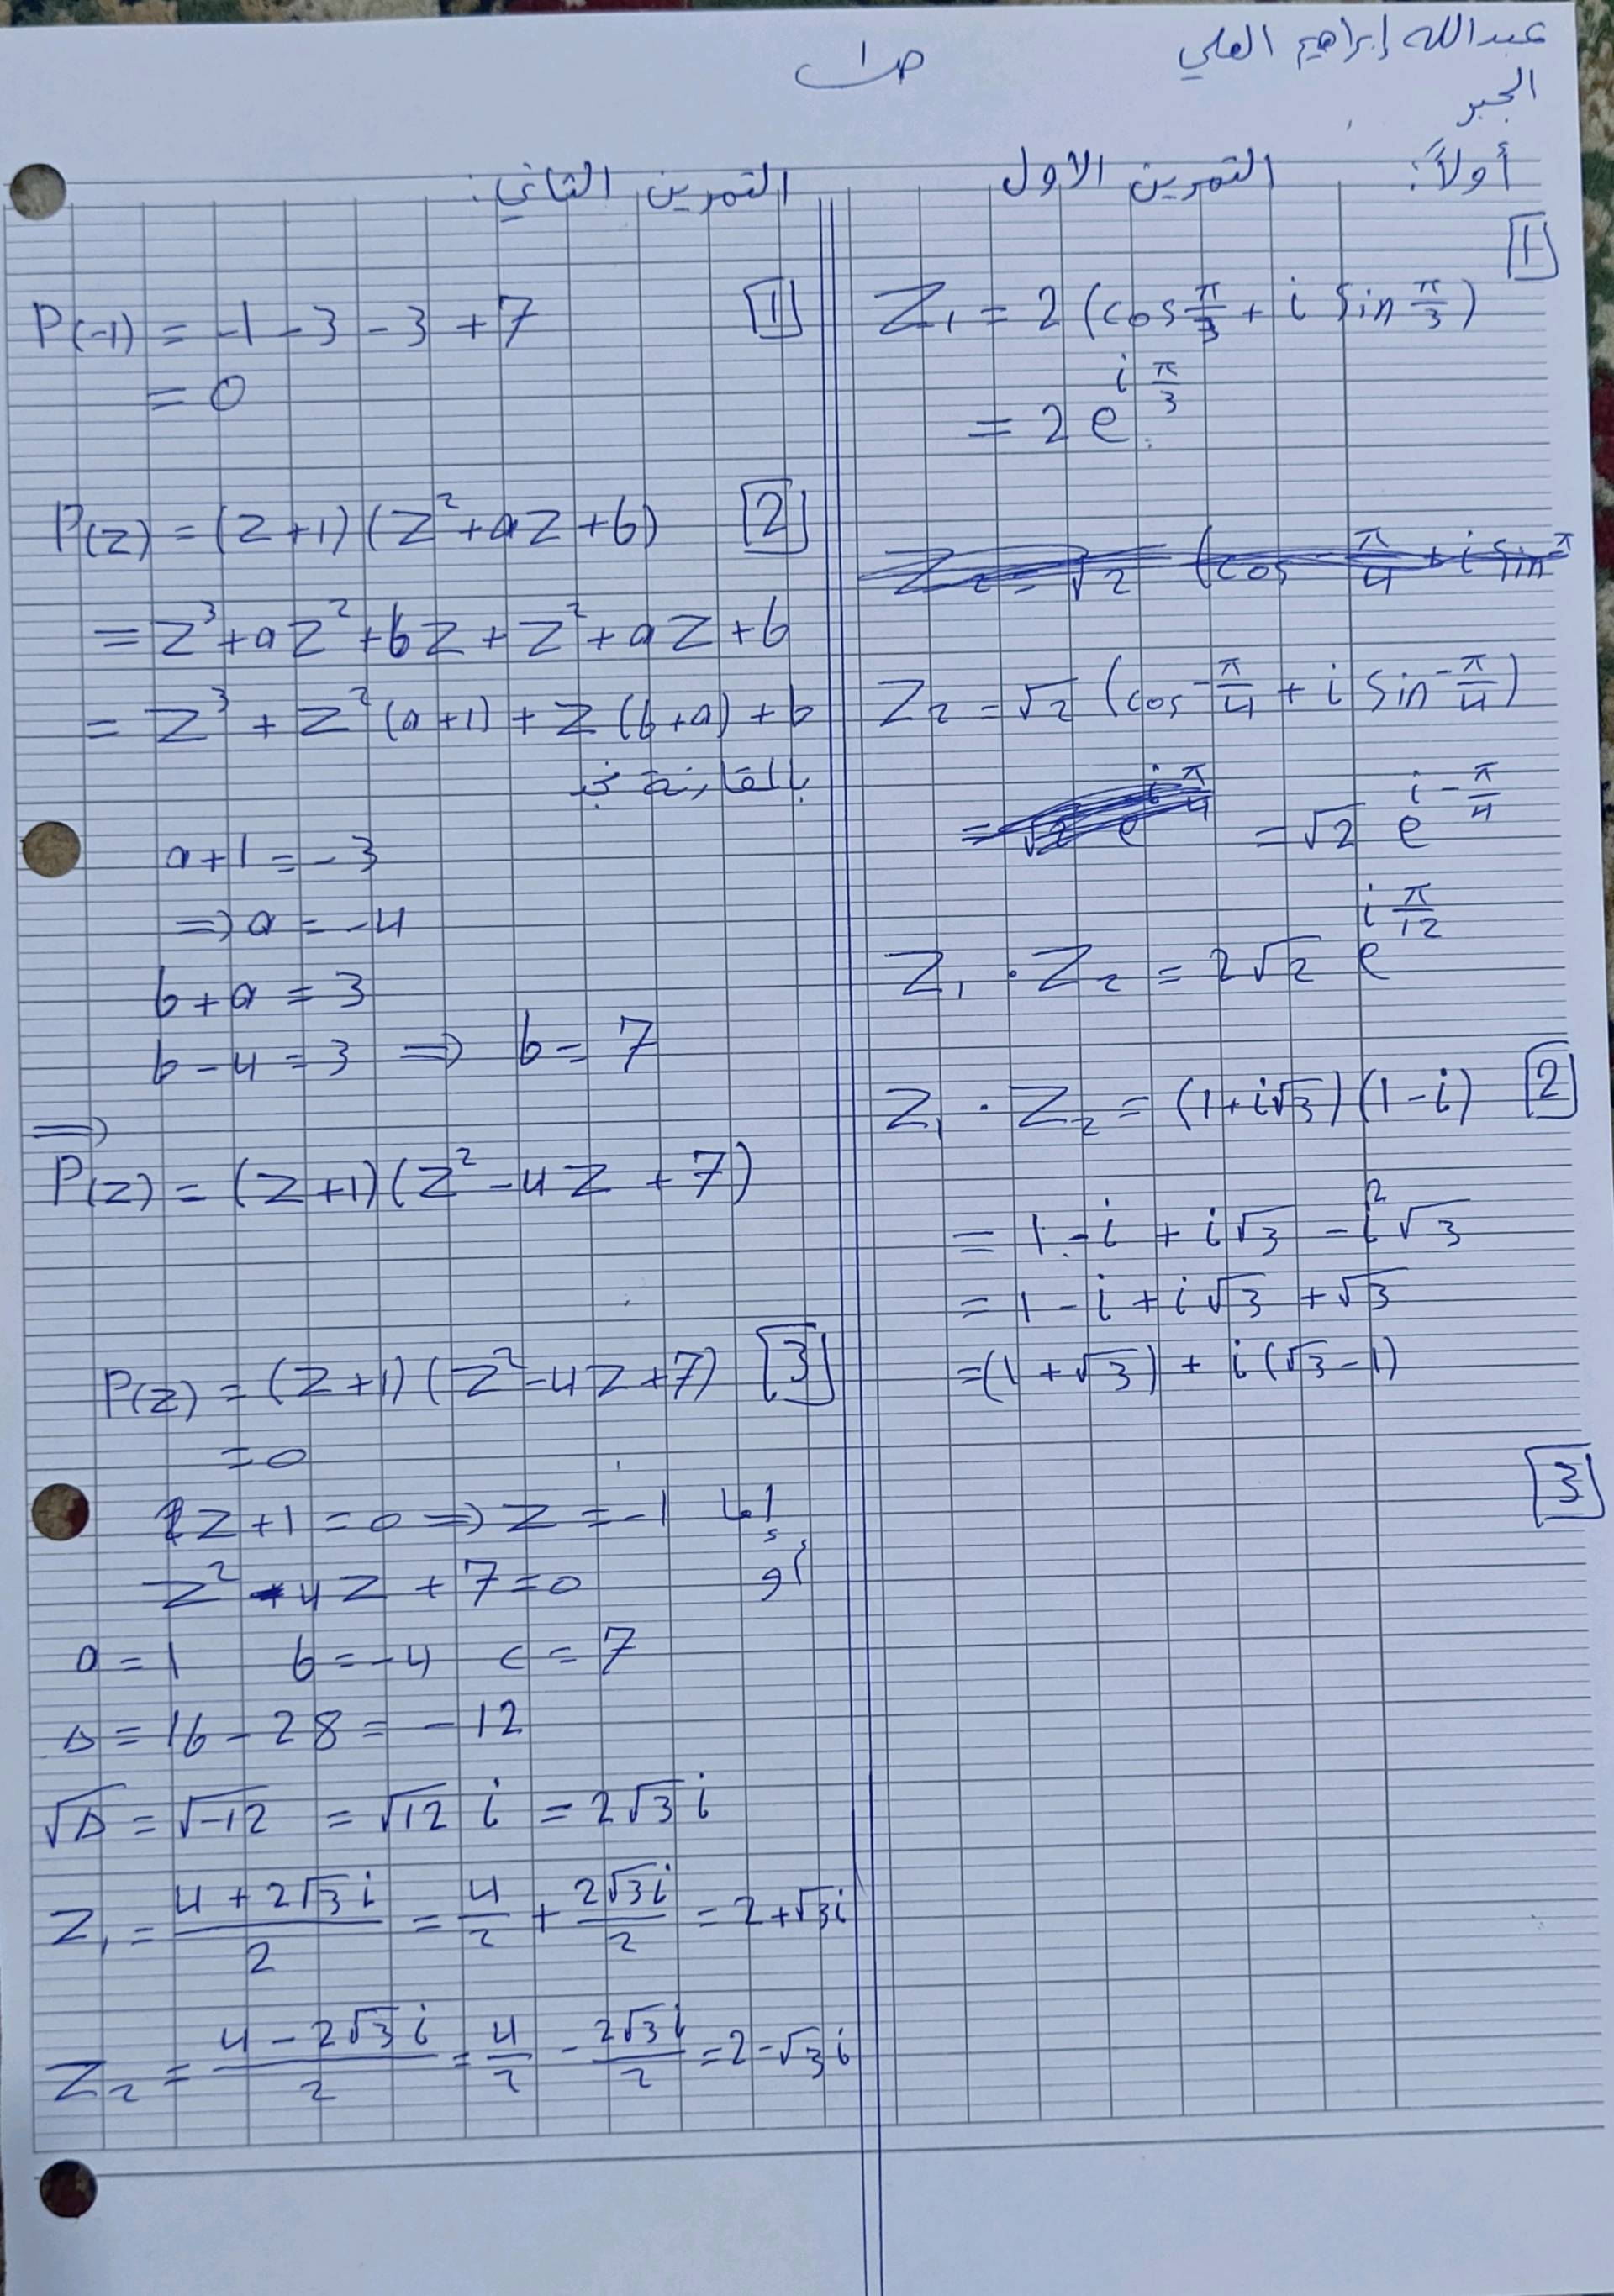 عبدالله إبراهيم العلي
ص١
الجبر
أولاً: التمرين الاول
[1]
Z₁ = 2 (cos π/3 + i sin π/3)
= 2 e^(i π/3)
Z₂ = √2 (cos π/4 + i sin π
Z₂ = √2 (cos -π/4 + i sin -π/4)
= √2 e^(i π/4) = √2 e^(i -π/4)
Z₁ . Z₂ = 2√2 e^(i π/12)
[2] Z₁ . Z₂ = (1+i√3)(1-i)
= 1 - i + i√3 - i²√3
= 1 - i + i√3 + √3
= (1 + √3) + i(√3 - 1)
[3]
التمرين الثاني:
[1] P(-1) = -1 - 3 - 3 + 7
= 0
[2] P(z) = (z+1)(z²+az+b)
= z³ + az² + bz + z² + az + b
= z³ + z²(a+1) + z(b+a) + b
بالمقارنة نجد
a+1 = -3
⇒ a = -4
b+a = 3
b-4 = 3 ⇒ b = 7
⇒
P(z) = (z+1)(z²-4z+7)
[3] P(z) = (z+1)(z²-4z+7)
= 0
إما z+1 = 0 ⇒ z = -1
أو z² - 4z + 7 = 0
a = 1 b = -4 c = 7
Δ = 16 - 28 = -12
√Δ = √-12 = √12 i = 2√3 i
Z₁ = (4 + 2√3 i)/2 = 4/2 + 2√3i/2 = 2+√3i
Z₂ = (4 - 2√3 i)/2 = 4/2 - 2√3i/2 = 2-√3i